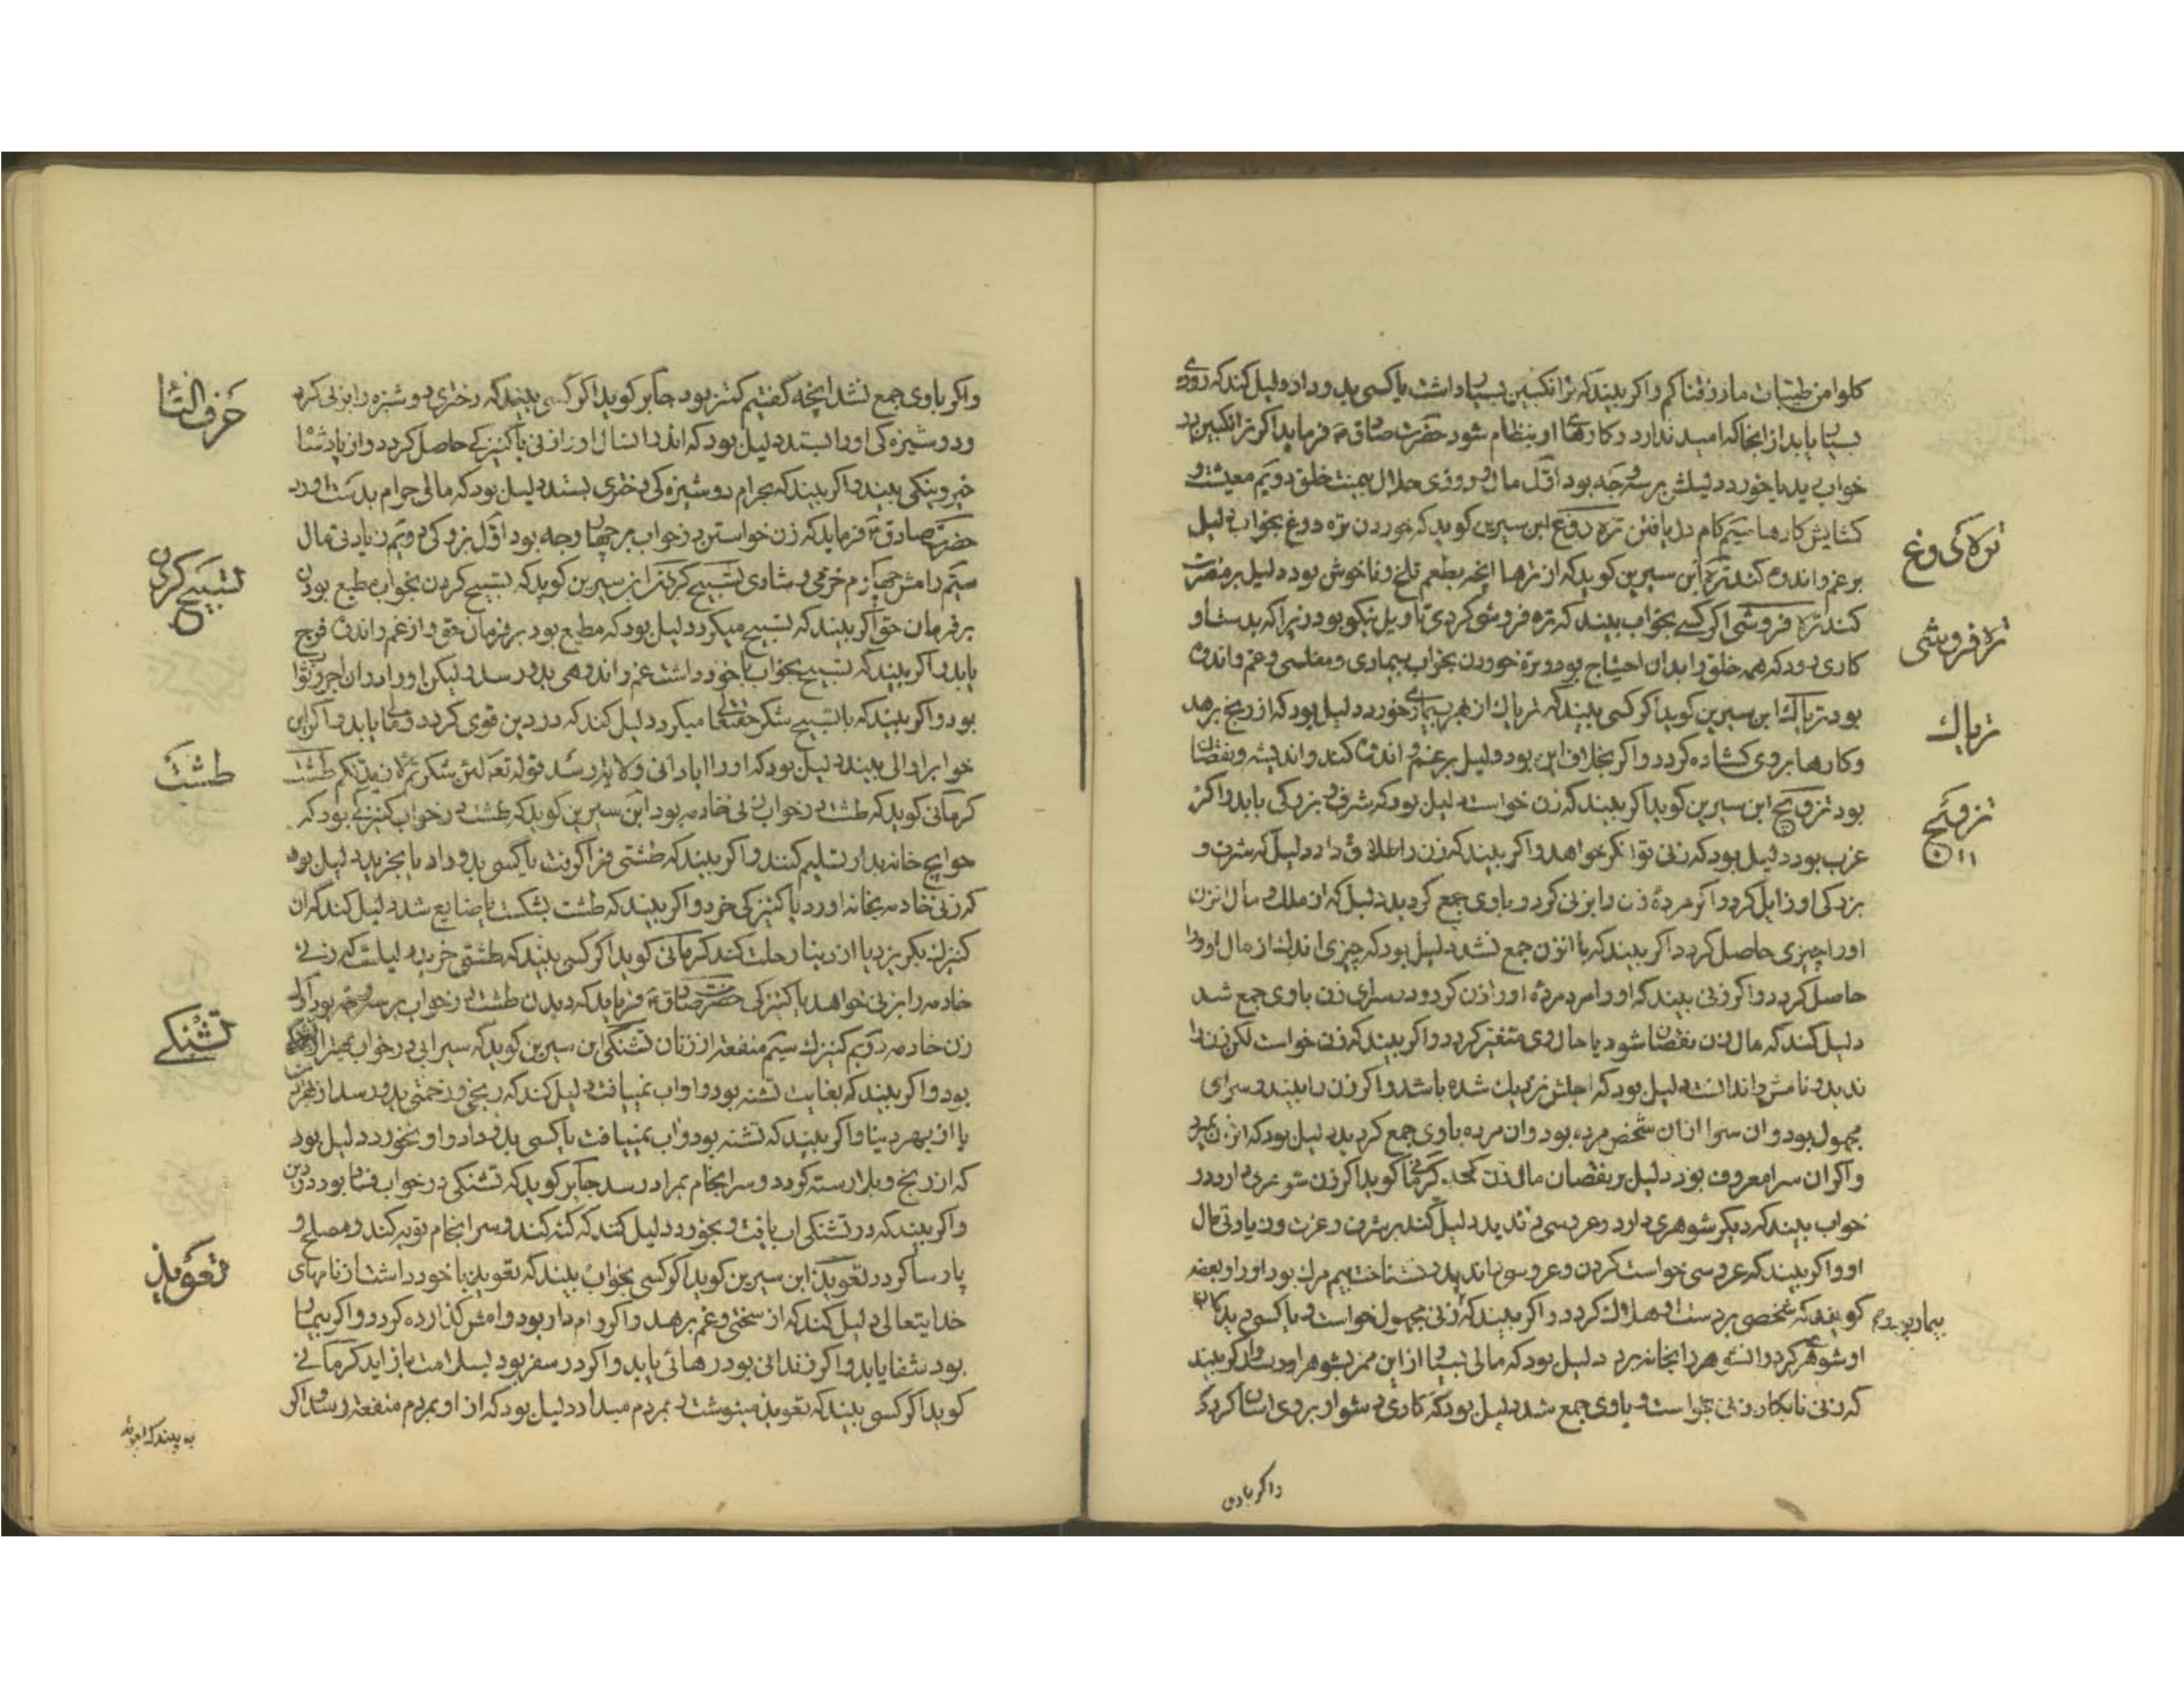 کلوا من طیبات ما رزقناکم و اکر بیند که ترانکبین بسیار داشت یا کسی بدو داد دلیل کند که روزی
بسیار یابد از انجا که امید ندارد و کارهای او بنظام شود حضرت صادق ع فرماید اکر ترانکبین در
خواب بیند یا خورد دلیلش بر سه وجه بود اول مال و روزی حلال بی منت خلق دویم معیشت و
کشایش کارها سیم کام دل یافتن تره دوغ ابن سیرین کوید که خوردن تره دوغ بخواب دلیل
تره دوغ
بر غم و اندوه کند تره ابن سیرین کوید که از ترها انچه بطعم تلخ و ناخوش بود دلیل بر مضرت
کند تره فروشی اکر کسی بخواب بیند که تره فروشی کردی تاویل نیکو بود زیرا که بدست او
تره فروشی
کاری بود که همه خلق را بدان احتیاج بود و تره خوردن بخواب بیماری و مفلسی و غم و اندوه
بود تریاک ابن سیرین کوید اکر کسی بیند که تریاک از بهر بیماری خورد دلیل بود که از رنج برهد
تریاک
و کارها بر وی کشاده کردد و اکر بخلاف این بود دلیل بر غم و اندوه کند و اندیشه و نقصان
بود تزویج ابن سیرین کوید اکر بیند که زن خواست دلیل بود که شرف و بزرکی یابد و اکر
تزویج
عزب بود دلیل بود که زنی توانکر خواهد و اکر بیند که زن را طلاق داد دلیل که شرف و
بزرکی او زایل کردد و اکر مردهٔ زن را بزنی کرد و با وی جمع کردید دلیل که از ملک و مال ان زن
او را چیزی حاصل کردد و اکر بیند که با ان زن جمع نشد دلیل بود که چیزی اندک از مال او را
حاصل کردد و اکر زنی بیند که او را مرد مرده او را زن کرد و در سرای زن با وی جمع شد
دلیل کند که مال زن نقصان شود یا حال وی متغیر کردد و اکر بیند که زن خواست لکن زن را
ندید و نامش را ندانست دلیل بود که اجلش نزدیک شده باشد و اکر زن را بیند و سرای
مجهول بود و ان سرا از ان شخص مرده بود و ان مرده با وی جمع کردید دلیل بود که ان زن بمیرد
و اکر ان سرا معروف بود دلیل بر نقصان مال زن کند کرمانی کوید اکر زن شوهری دارد در
خواب بیند که دیکر شوهری دارد و عروسی و ندید دلیل کند بر شرف و عزت و زیادتی مال
او و اکر بیند که عروسی خواست کردن و عروس نداند و نشناخت بیم مرک بود او را و بعضی
کویند که شخصی بر دست او هلاک کردد و اکر بیند که زنی مجهول خواست و یا کسی بدکار
او شوهر کرد و انشوهر را بخانه برد دلیل بود که مالی بسیار از این ممر بشوهر او رسد و اکر بیند
که زنی نابکار بزنی خواست و با وی جمع شد دلیل بود که کاری دشوار بر وی اسان کردد
و اکر با وی
و اکر با وی جمع نشد انچه کفتیم کمتر بود جابر کوید اکر کسی بیند که دختری دوشیزه را بزنی کرد
حرف التا
و دوشیزه کی او را بستد دلیل بود که اندر ان سال او زنی یا کنیزکی حاصل کردد و از پادشا
خیر و نیکی بیند و اکر بیند که بحرام دوشیزه کی دختری بستد دلیل بود که مالی حرام بدست اورد
حضرت صادق ع فرماید که زن خواستن در خواب بر چهار وجه بود اول بزرکی دویم زیادتی مال
سیم رامش چهارم خرمی و شادی تسبیح کردن ابن سیرین کوید که تسبیح کردن بخواب مطیع بودن
تسبیح کردن
بر فرمان حق اکر بیند که تسبیح میکرد دلیل بود که مطیع بود بر فرمان حق و از غم و اندوه فرج
یابد و اکر بیند که تسبیح بخواب با خود داشت غم و اندوهی بدو رسد و لیکن او را در ان اجر و ثواب
بود و اکر بیند که با تسبیح شکر حقتعالی میکرد دلیل کند که در دین قوی کردد و مال یابد و اکر این
خواب را والی بیند دلیل بود که او را ابادانی ولایت رسد قوله تعه لئن شکرتم لازیدنکم طشت
طشت
کرمانی کوید که طشت در خواب زنی خادمه بود ابن سیرین کوید که طشت در خواب کنیزکی بود که
حوایج خانه بدو تسلیم کنند و اکر بیند که طشتی فرا کرفت یا کسی بدو داد یا بخرید دلیل بود
که زنی خادمه بخانه اورد یا کنیزکی خرد و اکر بیند که طشت بشکست یا ضایع شد دلیل کند که ان
کنیزک بکریزد یا از دنیا رحلت کند کرمانی کوید اکر کسی بیند که طشتی خرید دلیلست که زنی
خادمه را بزنی خواهد یا کنیزکی حضرت صادق ع فرماید که دیدن طشت در خواب بر سه وجه بود اول
زن خادمه دویم کنیزک سیم منفعت از زنان تشنکی ابن سیرین کوید که سیرابی در خواب بهتر از تشنکی
تشنکی
بود و اکر بیند که بغایت تشنه بود و اب نمییافت دلیل کند که رنجی و زحمتی بدو رسد از
یا از بهر دنیا و اکر بیند که تشنه بود و اب نمییافت یا کسی بدو داد و او نخورد دلیل بود
که از رنج و بلا رسته کردد و سرانجام بمراد رسد جابر کوید که تشنکی در خواب فساد بود در دین
و اکر بیند که در تشنکی اب یافت و بخورد دلیل کند که کنه کند و سرانجام توبه کند و مصلح و
پارسا کردد تعویذ ابن سیرین کوید اکر کسی بخواب بیند که تعویذ با خود داشت از نامهای
تعویذ
خدایتعالی دلیل کند که از سختی و غم برهد و اکر وام دار بود وامش کذارده کردد و اکر بیمار
بود شفا یابد و اکر زندانی بود رهائی یابد و اکر در سفر بود بسلامت باز اید کرمانی
کوید اکر کسی بیند که تعویذ مینوشت و بمردم میداد دلیل بود که از او بمردم منفعت رسد و اکر